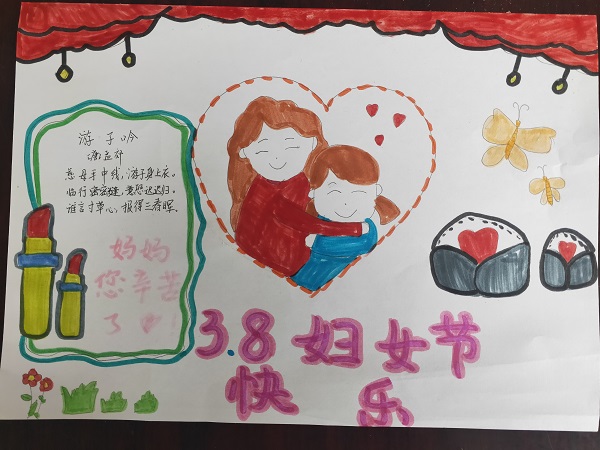 游子吟
唐孟郊
慈母手中线，游子身上衣。
临行密密缝，意恐迟迟归。
谁言寸草心，报得三春晖。
妈妈
您辛苦
了
3.8 妇女节
快乐